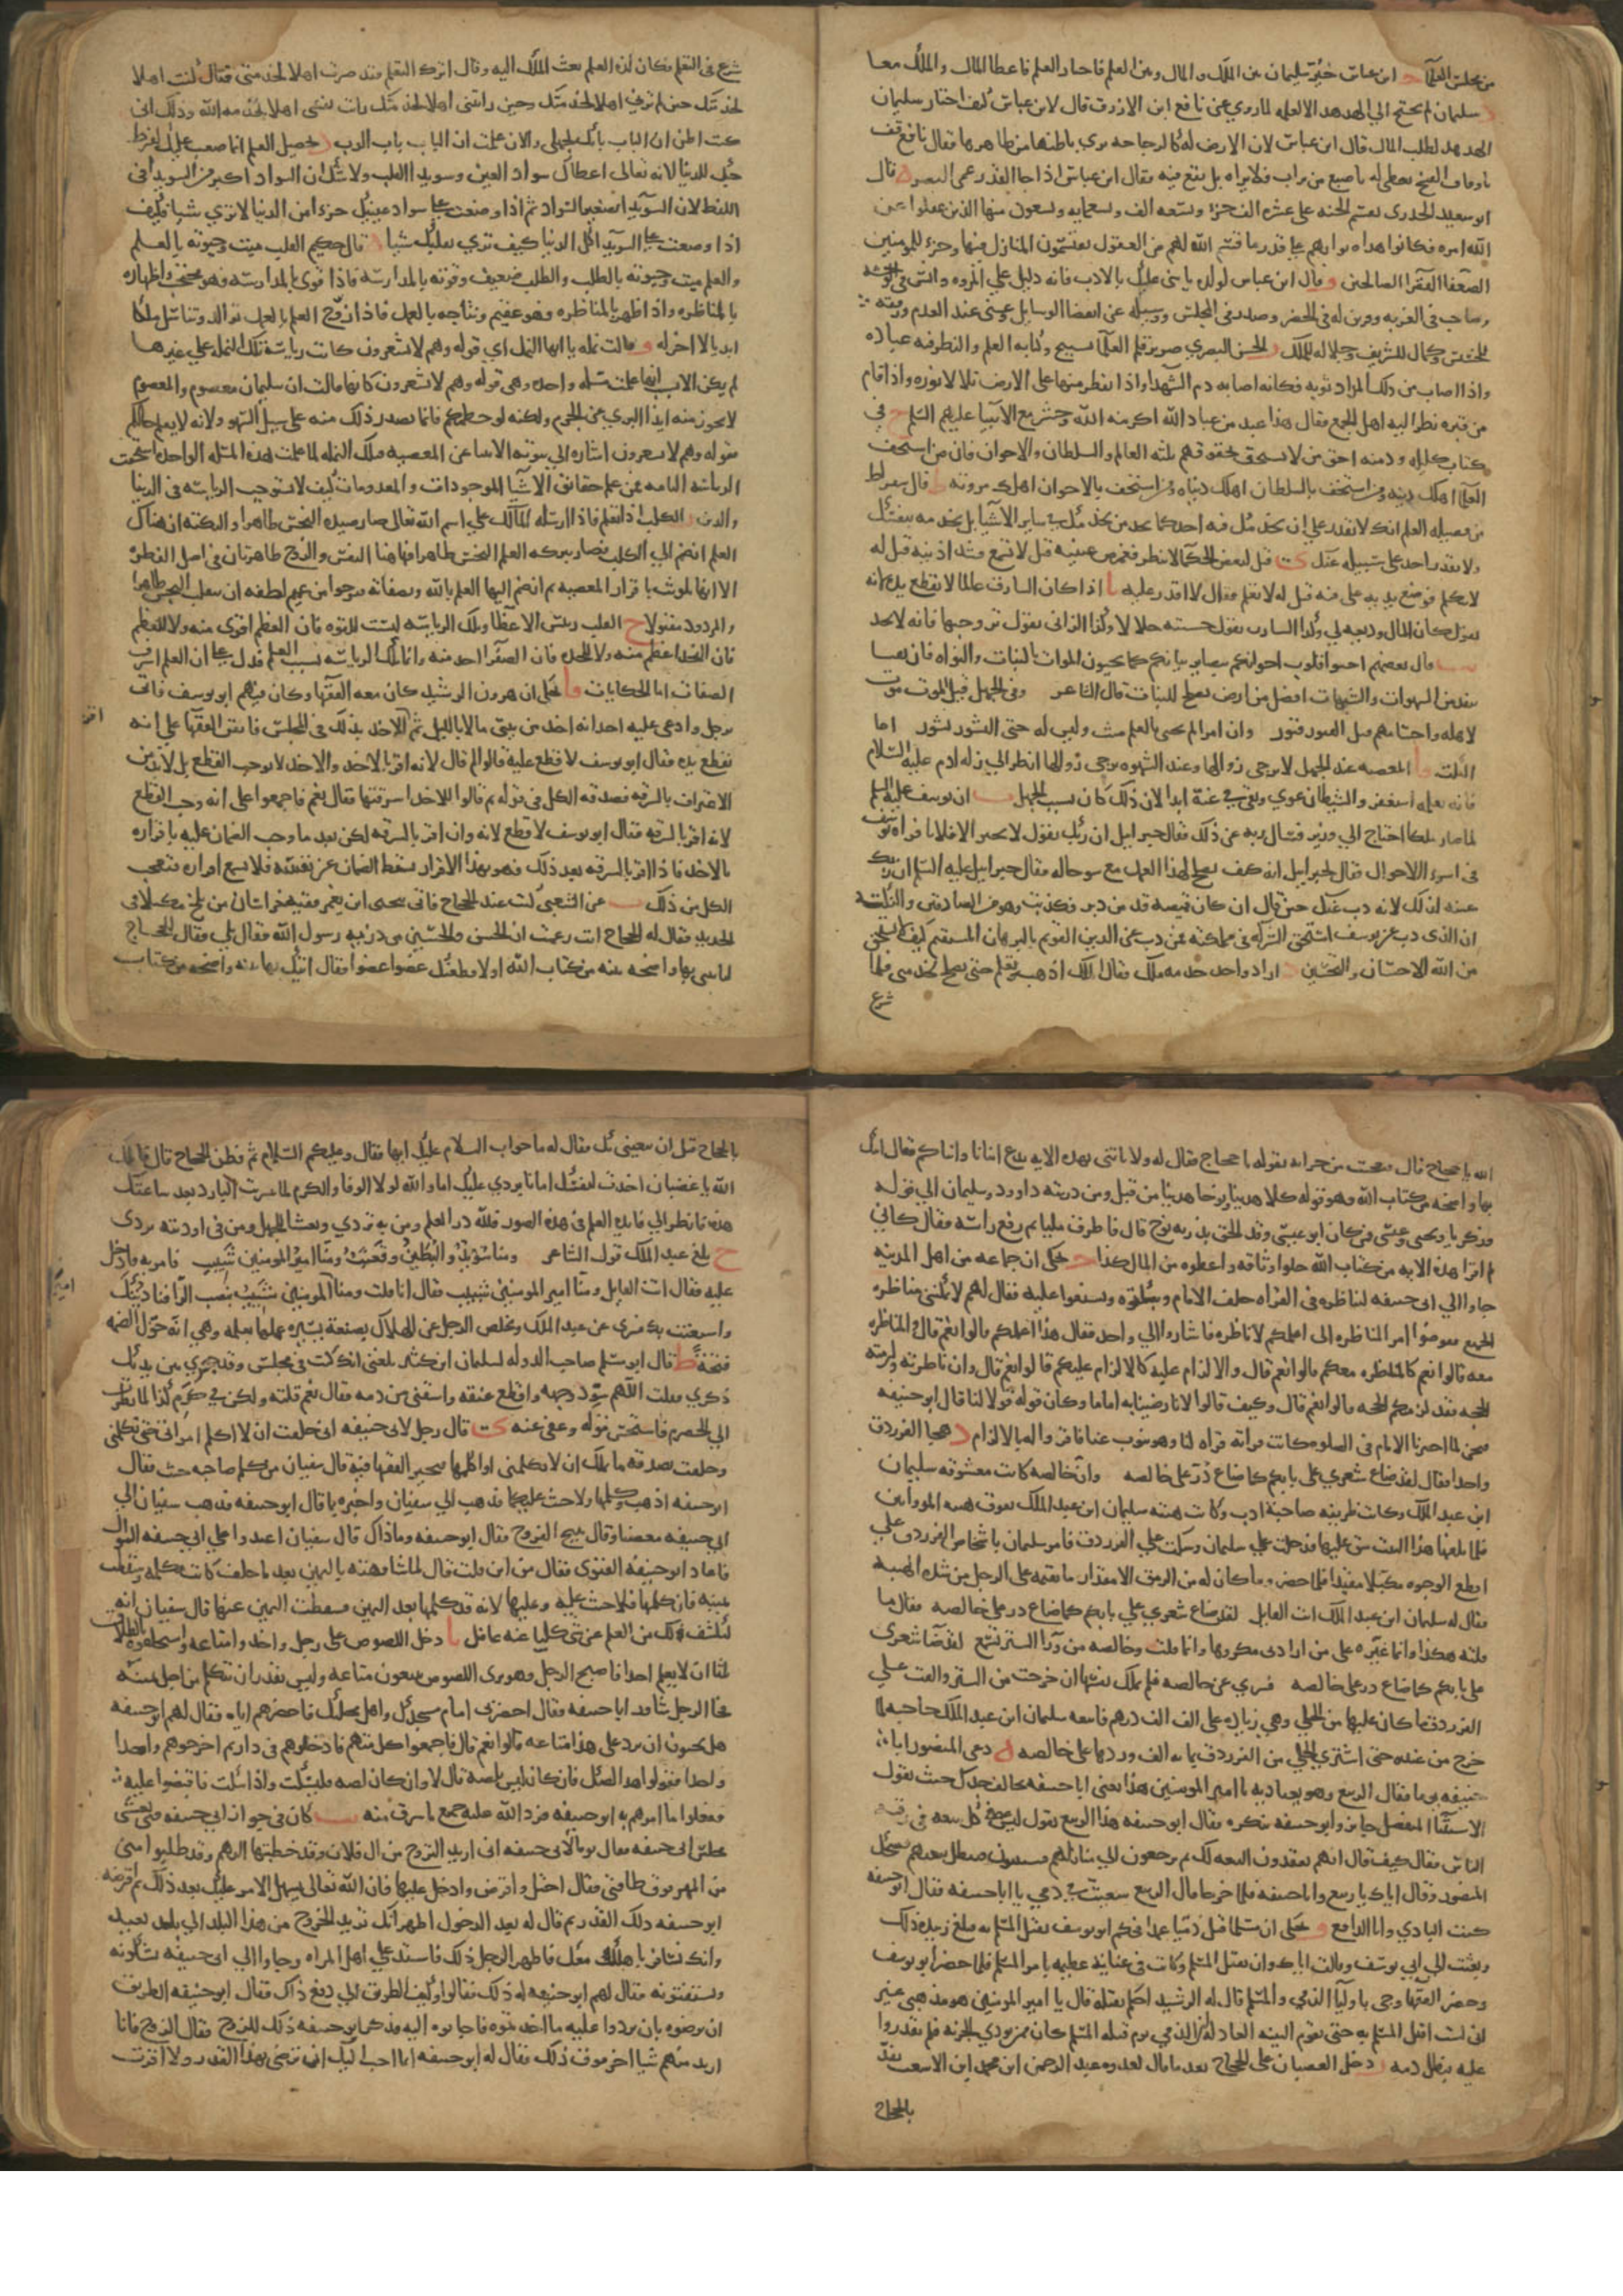 من مجلس العلماء د ابن عباس خير سليمان بين الملك والمال وبين العلم فاختار العلم فاعطا المال والملك معا
سليمان لم يحتج الي الهدهد الا لعلمه لما روي عن نافع ابن الازرق قال لابن عباس كيف اختار سليمان
الهدهد لطلب الما قال ابن عباس لان الارض له كالزجاجه يري باطنها من ظاهرها فقال نافع قف
يا وقاف الفخ يغطي له باصبع من تراب فلا يراه بل يقع فيه فقال ابن عباس اذا جا القدر عمي البصر قال
ابو سعيد الخدري تقسم الجنه على عشره الف جزء وتسعه الف وتسعمايه وتسعون منها الذين عقلوا عن
الله امره فكان هذا ثوابهم على قدر ما قسم الله لهم من العقول يقتسمون المنازل فيها وجزء للمومنين
الضعفا الفقرا الصالحين و قال ابن عباس لولده يا بني عليك بالادب فانه دليل علي المروه وانس في الوحشه
وصاحب في الغربه وقرين له في الحضر وصدر في المجلس ووسيله عن انقضا الوسايل وغنى عند العدم ورفعه
للخسيس وكمال للشريف وجلاله للملك الحسن البصري صرير قلم العلما تسبيح وكتابه العلم والنظر فيه عباده
واذا اصاب من ذلك المداد ثوبه فكانه اصابه دم الشهدا واذا قطر منها على الارض تلالا نوره واذا قام
من قبره نظر اليه اهل الجمع فقال هذا عبد من عباد الله اكرمه الله وحشر مع الانبيا عليهم السلم في
كتاب كليله ودمنه احق من لا يستخف بحقوقهم ثلثه العالم والسلطان والاخوان فان من استخف
العلما اهلك دينه ومن استخف بالسلطان اهلك دنياه ومن استخف بالاخوان اهلك مروته قال سقراط
من فضيله العلم انك لا تقدر علي ان يخدمك فيه احد كما تجد من يخدمك في ساير الاشيا بل تخدمه بنفسك
ولا يقدر احد على سلبه عنك قيل لبعض الحكما لا تنظر فغمض عينيه قيل لا تسمع فسد اذنيه قيل له
لا تتكلم فوضع يديه على فيه قيل له لا تعلم فقال لا اقدر عليه اذا كان السارق عالما لا يقطع يده لانه
يقول كان المال وديعه لي وكذا الشارب يقول حسبته حلالا وكذا الزاني يقول تزوجتها فانه لا يحد
قال بعضهم احيوا قلوب اخوانكم ببصاير بيانكم كما تحيون الموات بالنبات والنواه فان نفسا
تبعد من الشهوات والشبهات افضل من ارض تصلح للنبات قال الشاعر وفي الجهل قبل الموت موت
لاهله واجسامهم قبل القبور قبور وان امرا لم يحيى بالعلم ميت وليس له حتى النشور نشور اما
النكت المعصيه عند الجهل لا يرجى زوالها وعند الشهوه يرجى زوالها انظر الي زله ادم عليه السلام
فانه بعلمه استغفر والشيطان غوي وبقي في غيه ابدا لان ذلك كان بسبب الجهل ان يوسف عليه السلم
لما صار ملكا احتاج الي وزير فسال ربه عن ذلك فقال جبرايل ان ربك يقول لا تختر الا فلانا فراه يوسف
في اسوء الاحوال فقال لجبرايل انه كيف يصلح لهذا العمل مع سو حاله فقال جبرايل عليه السلم ان ربك
عينه لذلك لانه ذب عنك حين قال ان كان قميصه قد من دبر فكذبت وهو من الصادقين والنكته
ان الذي ذب عن يوسف استحق الشركه في مملكته فمن ذب عن الدين القويم بالبرهان المستقيم كيف لا يستحق
من الله الاحسان والتحسين اراد واحد خدمه ملك فقال الملك اذهب وتعلم حتى تصلح لخدمتي فلما
شرع
شرع في التعلم وكان لذه العلم بعث الملك اليه وقال اترك التعلم فقد صرت اهلا لخدمتي فقال كنت اهلا
لخدمتك حين لم ترني اهلا لخدمتك وحين رايتني اهلا لخدمتك رايت نفسي اهلا لخدمه الله وذلك اني
كنت اظن ان الباب بابك لجهلي والان علمت ان الباب باب الرب تحصيل العلم انما صعب عليك لفرط
حبك للدنيا لانه تعالى اعطاك سواد العين وسويدا القلب ولا شك ان السواد اكبر من السويدا في
اللفظ لان السويدا تصغير السواد ثم اذا وضعت على سواد عينك جزءا من الدنيا لا تري شيا فكيف
اذا وضعت على السويدا كل الدنيا كيف تري بقلبك شيا قال حكيم القلب ميت وحيوته بالعلم
والعلم ميت وحيوته بالطلب والطلب ضعيف وقوته بالمدارسه فاذا قوى بالمدارسه فهو محتجب واظهاره
بالمناظره واذا ظهر بالمناظره وهو عقيم ونتاجه بالعمل فاذا زوج العلم بالعمل توالد وتناسل ملكا
ابديا لا اخر له و قالت نمله يا ايها النمل اي قوله وهم لا يشعرون كانت رياسه تلك النمله علي غيرها
لم يكن الا بسبب انها علمت مسئله واحده وهي قوله وهم لا يشعرون كانها قالت ان سليمان معصوم والمعصوم
لا يجوز منه ايذا البري عن الجرم ولكنه لو حطمكم فانما يصدر ذلك منه على سبيل السهو ولانه لا يعلم حالكم
فقوله وهم لا يشعرون اشاره الي تنزيه الانبيا عن المعصيه فتلك النمله لما علمت هذه المسئله الواحده استحقت
الرياسه التامه فمن علم حقايق الاشيا الموجودات والمعدومات كيف لا يستوجب الرياسه في الدنيا
والدين الكلب اذا تعلم فاذا ارسله المالك علي اسم الله تعالى صار صيده النجس طاهرا والنكته ان هناك
العلم انضم الي الكلب فصار ببركه العلم النجس طاهرا فهاهنا النفس والروح طاهرتان في اصل الفطره
الا انها تلوثت باقذار المعصيه ثم انضم اليها العلم بالله وبصفاته فنرجوا من عميم لطفه ان يقلب النجس طاهرا
والمردود مقبولا ح القلب رييس الاعضا وتلك الرياسه ليست للقوه فان العظم اقوى منه ولا للعظم
فان الفخذ اعظم منه ولا للحده فان الظفر احد منه وانما تلك الرياسه بسبب العلم فدل على ان العلم اشرف
الصفات اما الحكايات فا حكى ان هرون الرشيد كان معه الفقها وكان فيهم ابو يوسف فاتى
برجل وادعى عليه احد انه اخذ من بيتى مالا بالليل ثم اقر الاخذ بذلك في المجلس فاتفق الفقها على انه
تقطع يده فقال ابو يوسف لا قطع عليه قالوا لم قال لانه اقر بالاخذ والاخذ لا يوجب القطع بل لابد من
الاعتراف بالسرقه فصدقه الكل في قوله ثم قالوا للاخذ اسرقتها فقال نعم فاجمعوا على انه وجب القطع
لانه اقر بالسرقه فقال ابو يوسف لا قطع لانه وان اقر بالسرقه لكن بعد ما وجب الضمان عليه باقراره
بالاخذ فاذا اقر بالسرقه بعد ذلك فهو بهذا الاقرار يسقط الضمان عن نفسه فلا يسمع اقراره فتعجب
الكل من ذلك ب عن الشعبي كنت عند الحجاج فاتي بيحيى ابن يعمر فقيه خراسان من بلخ مكبلا في
الحديد فقال له الحجاج انت زعمت ان الحسن والحسين من ذريه رسول الله فقال بلي فقال الحجاج
لتاتيني بها واضحه بينه من كتاب الله او لاقطعنك عضوا عضوا فقال اتيك بها بينه واضحه من كتاب
الله يا حجاج قال فعجبت من جراته بقوله يا حجاج فقال له ولا تاتني بهذه الايه ندع ابنانا وابناكم فقال اتيك
بها واضحه من كتاب الله وهو قوله كلا هدينا ونوحا هدينا من قبل ومن ذريته داوود وسليمان الي قوله
وزكريا ويحيى وعيسى فمن كان ابو عيسى وقد الحق بذريه نوح قال فاطرق مليا ثم رفع راسه فقال كاني
لم اقرا هذه الايه من كتاب الله حلوا وثاقه واعطوه من المال كذا حكى ان جماعه من اهل المدينه
جاوا الي ابي حنيفه ليناظروه في القراه خلف الامام ويبكتوه ويشنعوا عليه فقال لهم لا يمكنني مناظره
الجميع ففوضوا امر المناظره الى اعلمكم لاناظره فاشاروا الي واحد فقال هذا اعلمكم قالوا نعم قال والمناظره
معه قالوا نعم كالمناظره معكم قالوا نعم قال والالزام عليه كالالزام عليكم قالوا نعم قال وان ناظرته ولزمته
الحجه فقد لزمتكم الحجه قالوا نعم قال وكيف قالوا لانا رضينا به اماما وكان قوله قولا لنا قال ابو حنيفه
فنحن لما اخترنا الامام في الصلوه كانت قراته قراه لنا وهو ينوب عنا فاقروا له بالالزام د هجا الفرزدق
واحدا فقال لقد ضاع شعري على بابكم كما ضاع در على خالصه وان خالصه كانت معشوقه سليمان
ابن عبد الملك وكانت ظريفه صاحبه ادب وكانت هيبه سليمان ابن عبد الملك تفوق هيبه المروانين
فلما بلغها هذا البيت شق عليها فدخلت علي سليمان وشكت علي الفرزدق فامر سليمان باشخاص الفرزدق علي
افظع الوجوه مكبلا مقيدا فلما حضر وما كان له من الرمق الا مقدار ما يقيمه على الرجل من شده الهيبه
فقال له سليمان ابن عبد الملك انت القايل لقد ضاع شعري على بابكم كما ضاع در على خالصه فقال ما
قلته هكذا وانما غيره على من اراد بي مكروها وانما قلت وخالصه من ورا الستر تسمع لقد ضا شعري
على بابكم كما ضاع در على خالصه فسري عن خالصه فلم تملك نفسها ان خرجت من الستر والقت علي
الفرزدق ما كان عليها من الحلي وهي زياده على الف الف درهم فاتبعه سليمان ابن عبد الملك حاجبه لما
خرج من عنده حتى اشتري الحلي من الفرزدق بمايه الف وردها على خالصه ه دعى المنصور ابا
حنيفه يوما فقال الربيع وهو يعاديه يا امير المومنين هذا يعني ابا حنيفه يخالف جدك حيث يقول
الاستثنا المنفصل جايز وابو حنيفه ينكره فقال ابو حنيفه هذا الربيع يقول ليس لك بيعه في رقبه
الناس فقال كيف قال انهم يعقدون البيعه لك ثم يرجعون الي منازلهم فيستثنون فتبطل بيعتهم فضحك
المنصور وقال اياك يا ربيع وابا حنيفه فلما خرجا قال الربيع سعيت في دمي يا ابا حنيفه فقال ابو حنيفه
كنت البادي وانا الدافع و حكى ان مسلما قتل ذميا عمدا فحكم ابو يوسف بقتل المسلم به فبلغ زبيده ذلك
وبعثت الي ابي يوسف وقالت اياك وان تقتل المسلم وكانت في عنايه عظيمه بامر المسلم فلما حضر ابو يوسف
وحضر الفقها وجى باوليا الذمي والمسلم قال له الرشيد احكم بقتله قال يا امير المومنين هو مذهبي غير
اني لست اقتل المسلم به حتى تقوم البينه العادله ان الذمي يوم قتله المسلم كان ممن يودي الجزيه فلم يقدروا
عليه فبطل دمه ز دخل الغضبان على الحجاج بعد ما قال لعدوه عبد الرحمن ابن محمد ابن الاشعث تغد
بالحجاج
بالحجاج قبل ان يتعشى بك فقال له ما جواب السلام عليك ايها فقال وعليكم السلام ثم فطن الحجاج قال قاتلك
الله يا غضبان اخذت لنفسك امانا بردي عليك اما والله لولا الوفا والكرم لما شربت البارد بعد ساعتك
هذه فانظر الي فايده العلم في هذه الصوره فلله در العلم ومن به تردي وبعثا للجهل ومن في اوديته تردي
ح بلغ عبد الملك قول الشاعر ومنا سويد والبطين وقعنب ومنا امير المومنين شبيب فامر به فادخل
عليه فقال انت القايل ومنا امير المومنين شبيب فقال انما قلت ومنا امير المومنين شبيب بنصب الرا فناديتك
واستغثت بك فسري عن عبد الملك وتخلص الرجل عن الهلاك بصنعه يسيره عملها بعلمه وهي انه حول الضمه
فتحه ط قال ابو مسلم صاحب الدوله لسليمان ابن كثير بلغني انك كنت في مجلس وقد جرى بين يديك
ذكري فقلت اللهم سود وجهه واقطع عنقه واسقني من دمه فقال نعم قلته ولكن في كرم كذا لما نظرت
الي الحصرم فاستحسن قوله وعفى عنه ى قال رجل لابي حنيفه اني حلفت ان لا اكلم امراتي حتى تكلمني
وحلفت بصدقه ما تملك ان لا تكلمني او اكلمها فتحير الفقها فيه قال سفيان من كلم صاحبه حنث فقال
ابو حنيفه اذهب وكلمها ولا حنث عليكما فذهب الي سفيان واخبره بما قال ابو حنيفه فذهب سفيان الي
ابي حنيفه مغضبا وقال تبيح الفروج فقال ابو حنيفه وما ذاك قال سفيان اعيدوا علي ابي حنيفه السوال
فاعاد ابو حنيفه الفتوى فقال من اين قلت قال لما شافهته باليمين بعد ما حلف كانت مكلمه وسقطت
يمينه فان كلمها فلا حنث عليه وعليها لانه قد كلمها بعد اليمين فسقطت اليمين عنها قال سفيان انه
ليكشف لك من العلم عن شي كلنا عنه غافل يا دخل اللصوص على رجل واخذوا متاعه واستحلفوه بالطلاق
ثلثا ان لا يعلم احدا فاصبح الرجل وهو يرى اللصوص يبيعون متاعه وليس يقدر ان يتكلم من اجل يمينه
فجا الرجل يشاور ابا حنيفه فقال احضر لي امام مسجدك واهل محلتك فاحضرهم اياه فقال لهم ابو حنيفه
هل تحبون ان يرد على هذا متاعه قالوا نعم قال فاجمعوا كل متهم فادخلوهم في دار ثم اخرجوهم واحدا
واحدا فقولوا هذا لصك فان كان ليس بلصه قال لا وان كان لصه فليسكت واذا سكت فاقبضوا عليه
ففعلوا ما امرهم به ابو حنيفه فرد الله عليه جميع ما سرق منه يب كان في جوار ابي حنيفه فتى يغشى
مجلس ابي حنيفه فقال يوما لابي حنيفه اني اريد التزوج من ال فلان وقد خطبتها اليهم وقد طلبوا مني
من المهر فوق طاقتي فقال احتل واقترض وادخل عليها فان الله تعالى يسهل الامر عليك بعد ذلك ثم اقرضه
ابو حنيفه ذلك القدر ثم قال له بعد الدخول اظهر انك تريد الخروج من هذا البلد الي بلد بعيد
وانك تسافر باهلك معك فاظهر الرجل ذلك فاشتد علي اهل المراه وجاوا الي ابي حنيفه يشكونه
ويستفتونه فقال لهم ابو حنيفه له ذلك فقالوا وكيف الطريق الي دفع ذاك فقال ابو حنيفه الطريق
ان ترضوه بان تردوا عليه ما اخذتموه فاجابوه اليه فذكر ابو حنيفه ذلك للزوج فقال الزوج فانا
اريد منهم شيا اخر فوق ذلك فقال له ابو حنيفه ايما احب اليك ان ترضى بهذا القدر ولا اقرت